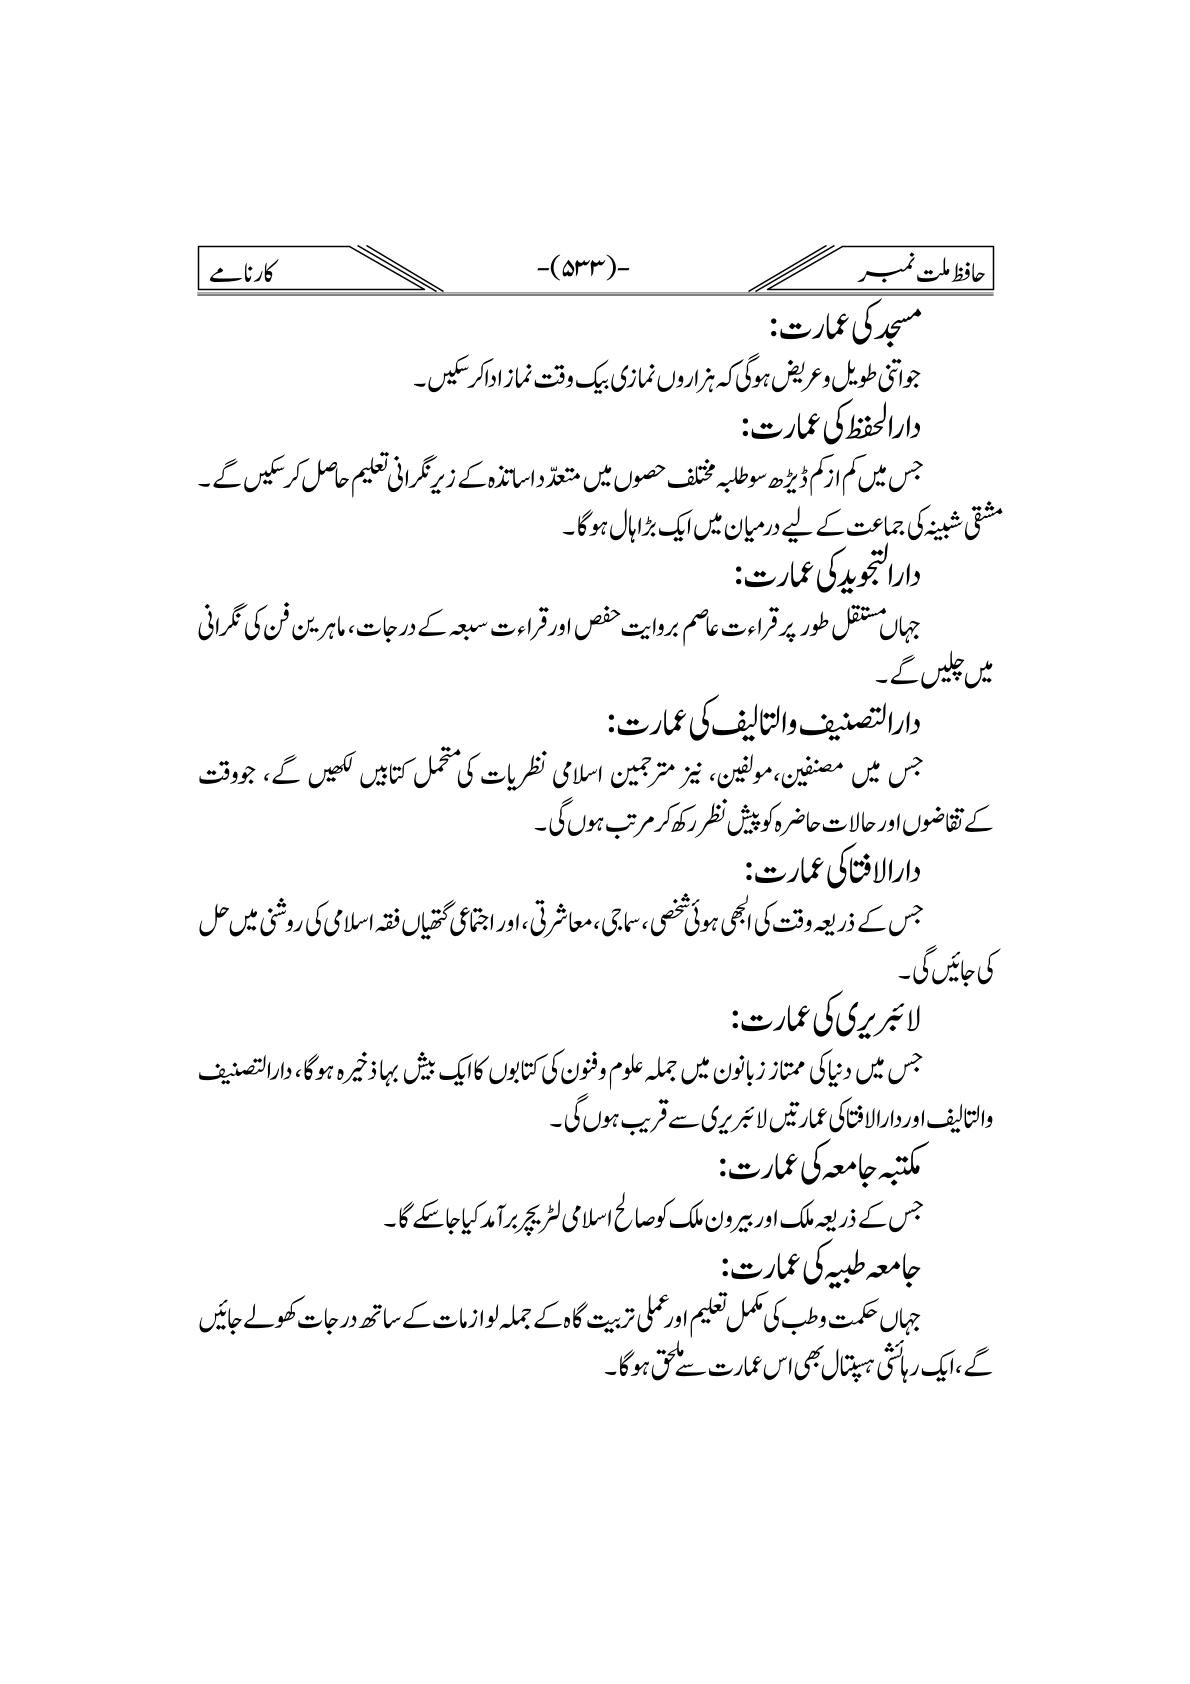 حافظ ملت نمبر -(۵۳۳)- کارنامے
مسجد کی عمارت:
جو اتنی طویل و عریض ہوگی کہ ہزاروں نمازی بیک وقت نماز ادا کر سکیں۔
دارالحفظ کی عمارت:
جس میں کم از کم ڈیڑھ سو طلبہ مختلف حصوں میں متعدّد اساتذہ کے زیرِ نگرانی تعلیم حاصل کر سکیں گے۔
مشقی شبینہ کی جماعت کے لیے درمیان میں ایک بڑا ہال ہوگا۔
دارالتجوید کی عمارت:
جہاں مستقل طور پر قراءت عاصم بروایت حفص اور قراءت سبعہ کے درجات، ماہرین فن کی نگرانی
میں چلیں گے۔
دارالتصنیف والتالیف کی عمارت:
جس میں مصنفین، مولفین، نیز مترجمین اسلامی نظریات کی متحمل کتابیں لکھیں گے، جو وقت
کے تقاضوں اور حالات حاضرہ کو پیش نظر رکھ کر مرتب ہوں گی۔
دارالافتا کی عمارت:
جس کے ذریعہ وقت کی الجھی ہوئی شخصی، سماجی، معاشرتی، اور اجتماعی گتھیاں فقہ اسلامی کی روشنی میں حل
کی جائیں گی۔
لائبریری کی عمارت:
جس میں دنیا کی ممتاز زبانوں میں جملہ علوم و فنون کی کتابوں کا ایک بیش بہا ذخیرہ ہوگا، دارالتصنیف
والتالیف اور دارالافتا کی عمارتیں لائبریری سے قریب ہوں گی۔
مکتبہ جامعہ کی عمارت:
جس کے ذریعہ ملک اور بیرون ملک کو صالح اسلامی لٹریچر برآمد کیا جا سکے گا۔
جامعہ طبیہ کی عمارت:
جہاں حکمت و طب کی مکمل تعلیم اور عملی تربیت گاہ کے جملہ لوازمات کے ساتھ درجات کھولے جائیں
گے، ایک رہائشی ہسپتال بھی اس عمارت سے ملحق ہوگا۔